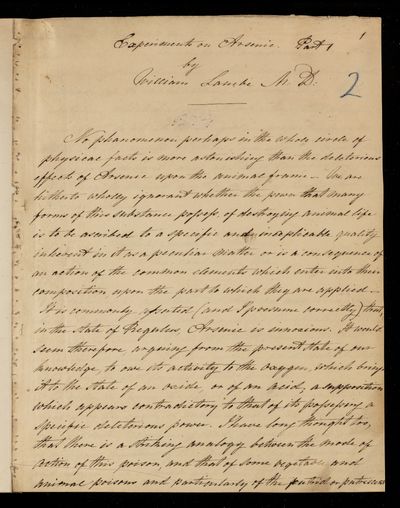 1
Experiments on Arsenic. Part 1
by
William Lambe M. D.
2
No phænomenon perhaps in the whole circle of
physical facts is more astonishing than the deleterious
effects of Arsenic upon the animal frame – We are
hitherto wholly ignorant whether the power that many
forms of this substance possess of destroying animal life
is to be ascribed to a specific and inexplicable quality
inherent in it as a peculiar matter or is a consequence of
an action of the common elements which enter into their
composition upon the part to which they are applied –
It is commonly reported (and I presume correctly) that,
in the state of Regulus, Arsenic is innoxious. It would
seem therefore arguing from the present state of our
knowledge to owe its activity to the Oxygen, which brings
it to the state of an oxide or of an acid, a supposition
which appears contradictory to that of its possessing a
specific deleterious power. I have long thought too,
that there is a striking analogy between the mode of
action of this poison, and that of some vegetable and
animal poisons and particularly of the putrid or